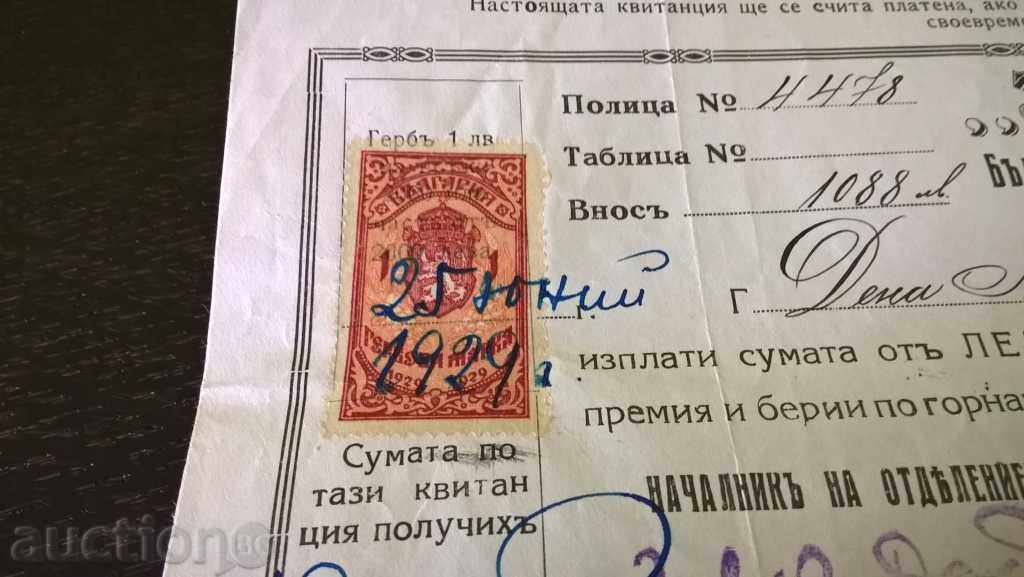 Настоящата квитанция ще се счита платена, ако
своевреме
Полица № 4478
Гербъ 1 лв
Таблица №
БЪ
Вносъ 1088 лв.
БЪЛГАРИЯ
1 1
25 юний
г.
Г Дена
1929 г.
1929 1929
изплати сумата отъ ЛЕ
премия и берии по горна
Сумата по
тази квитан
ция получихъ
НАЧАЛНИКЪ НА ОТДѢЛЕНИЕ
auction.bg